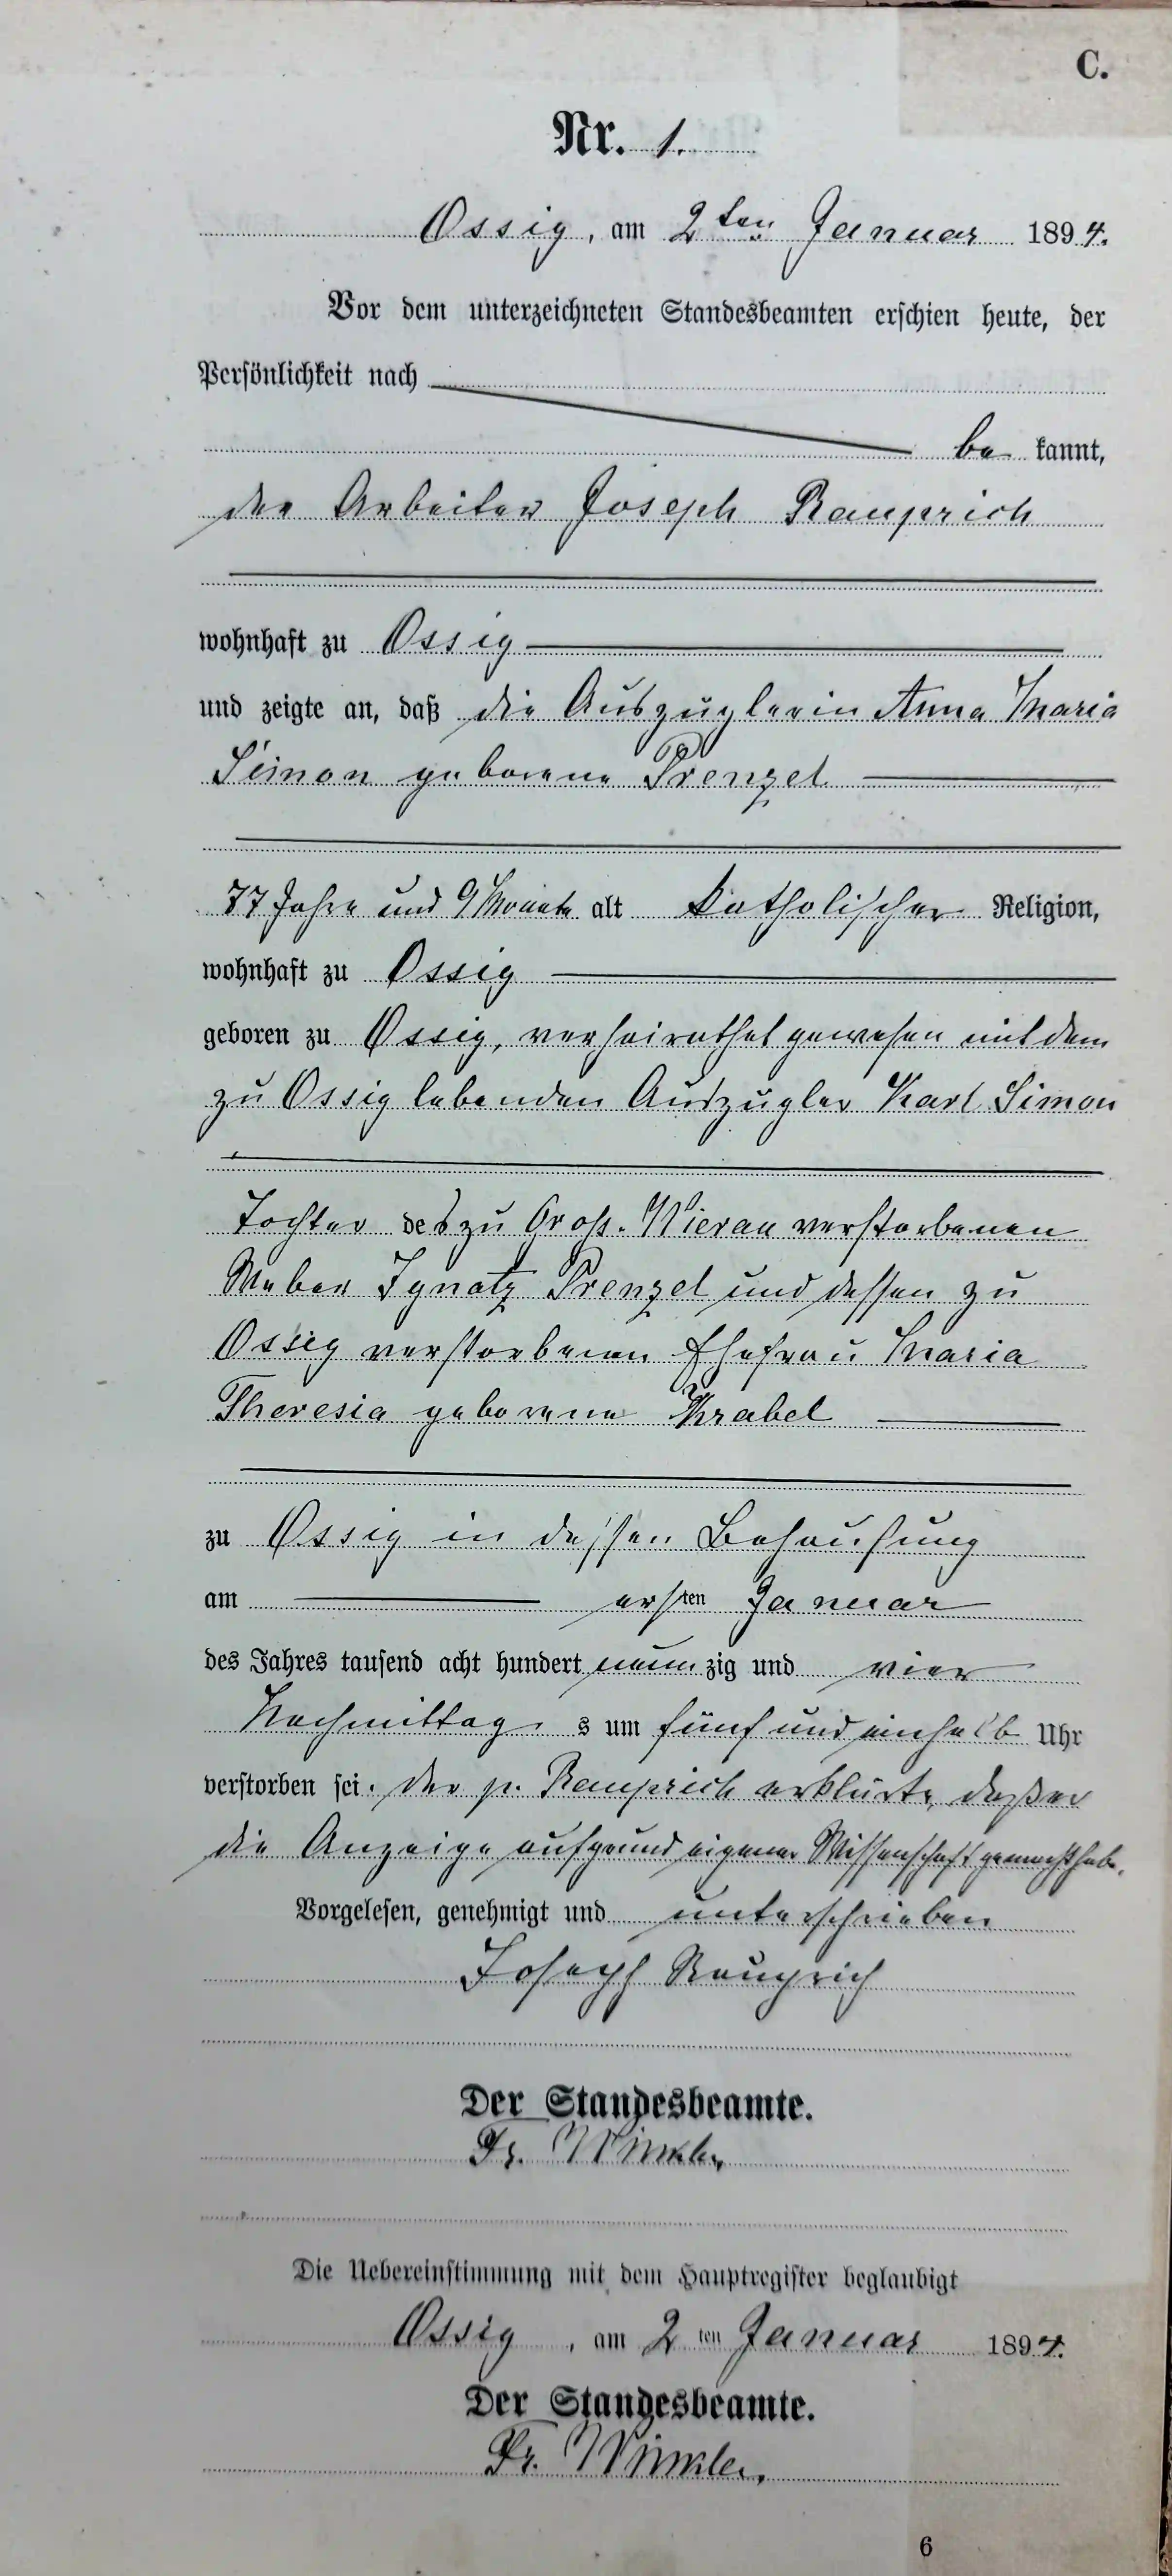 C.
Nr. 1.
Ossig, am 2ten Januar 1894.
Vor dem unterzeichneten Standesbeamten erschien heute, der
Persönlichkeit nach
be kannt,
der Arbeiter Joseph Rauprich
wohnhaft zu Ossig
und zeigte an, daß die Auszüglerin Anna Maria
Simon geborene Prenzel
77 Jahre und 9 Monate alt katholischer Religion,
wohnhaft zu Ossig
geboren zu Ossig, verheirathet gewesen mit dem
zu Ossig lebenden Auszügler Karl Simon
Tochter des zu Groß-Wierau verstorbenen
Weber Ignatz Prenzel und dessen zu
Ossig verstorbenen Ehefrau Maria
Theresia geborene
zu Ossig in dessen Behausung
am ersten Januar
des Jahres tausend acht hundert neun zig und vier
Nachmittag s um fünf und einhalb Uhr
verstorben sei. der p. Rauprich erklärte, daß er
die Anzeige aufgrund eigener Wissenschaft gemacht habe.
Vorgelesen, genehmigt und unterschrieben
Joseph Rauprich
Der Standesbeamte.
Fr. Winkler
Die Uebereinstimmung mit dem Hauptregister beglaubigt
Ossig, am 2 ten Januar 1894.
Der Standesbeamte.
Fr. Winkler.
6